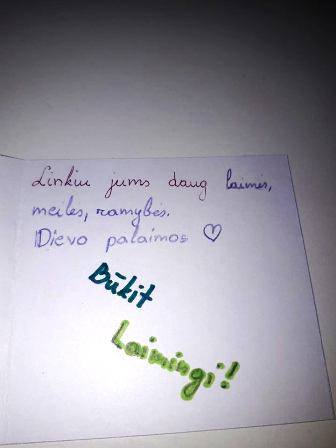 Linkiu jums daug laimės,
meilės, ramybės.
Dievo palaimos ♡
Būkit
Laimingi!